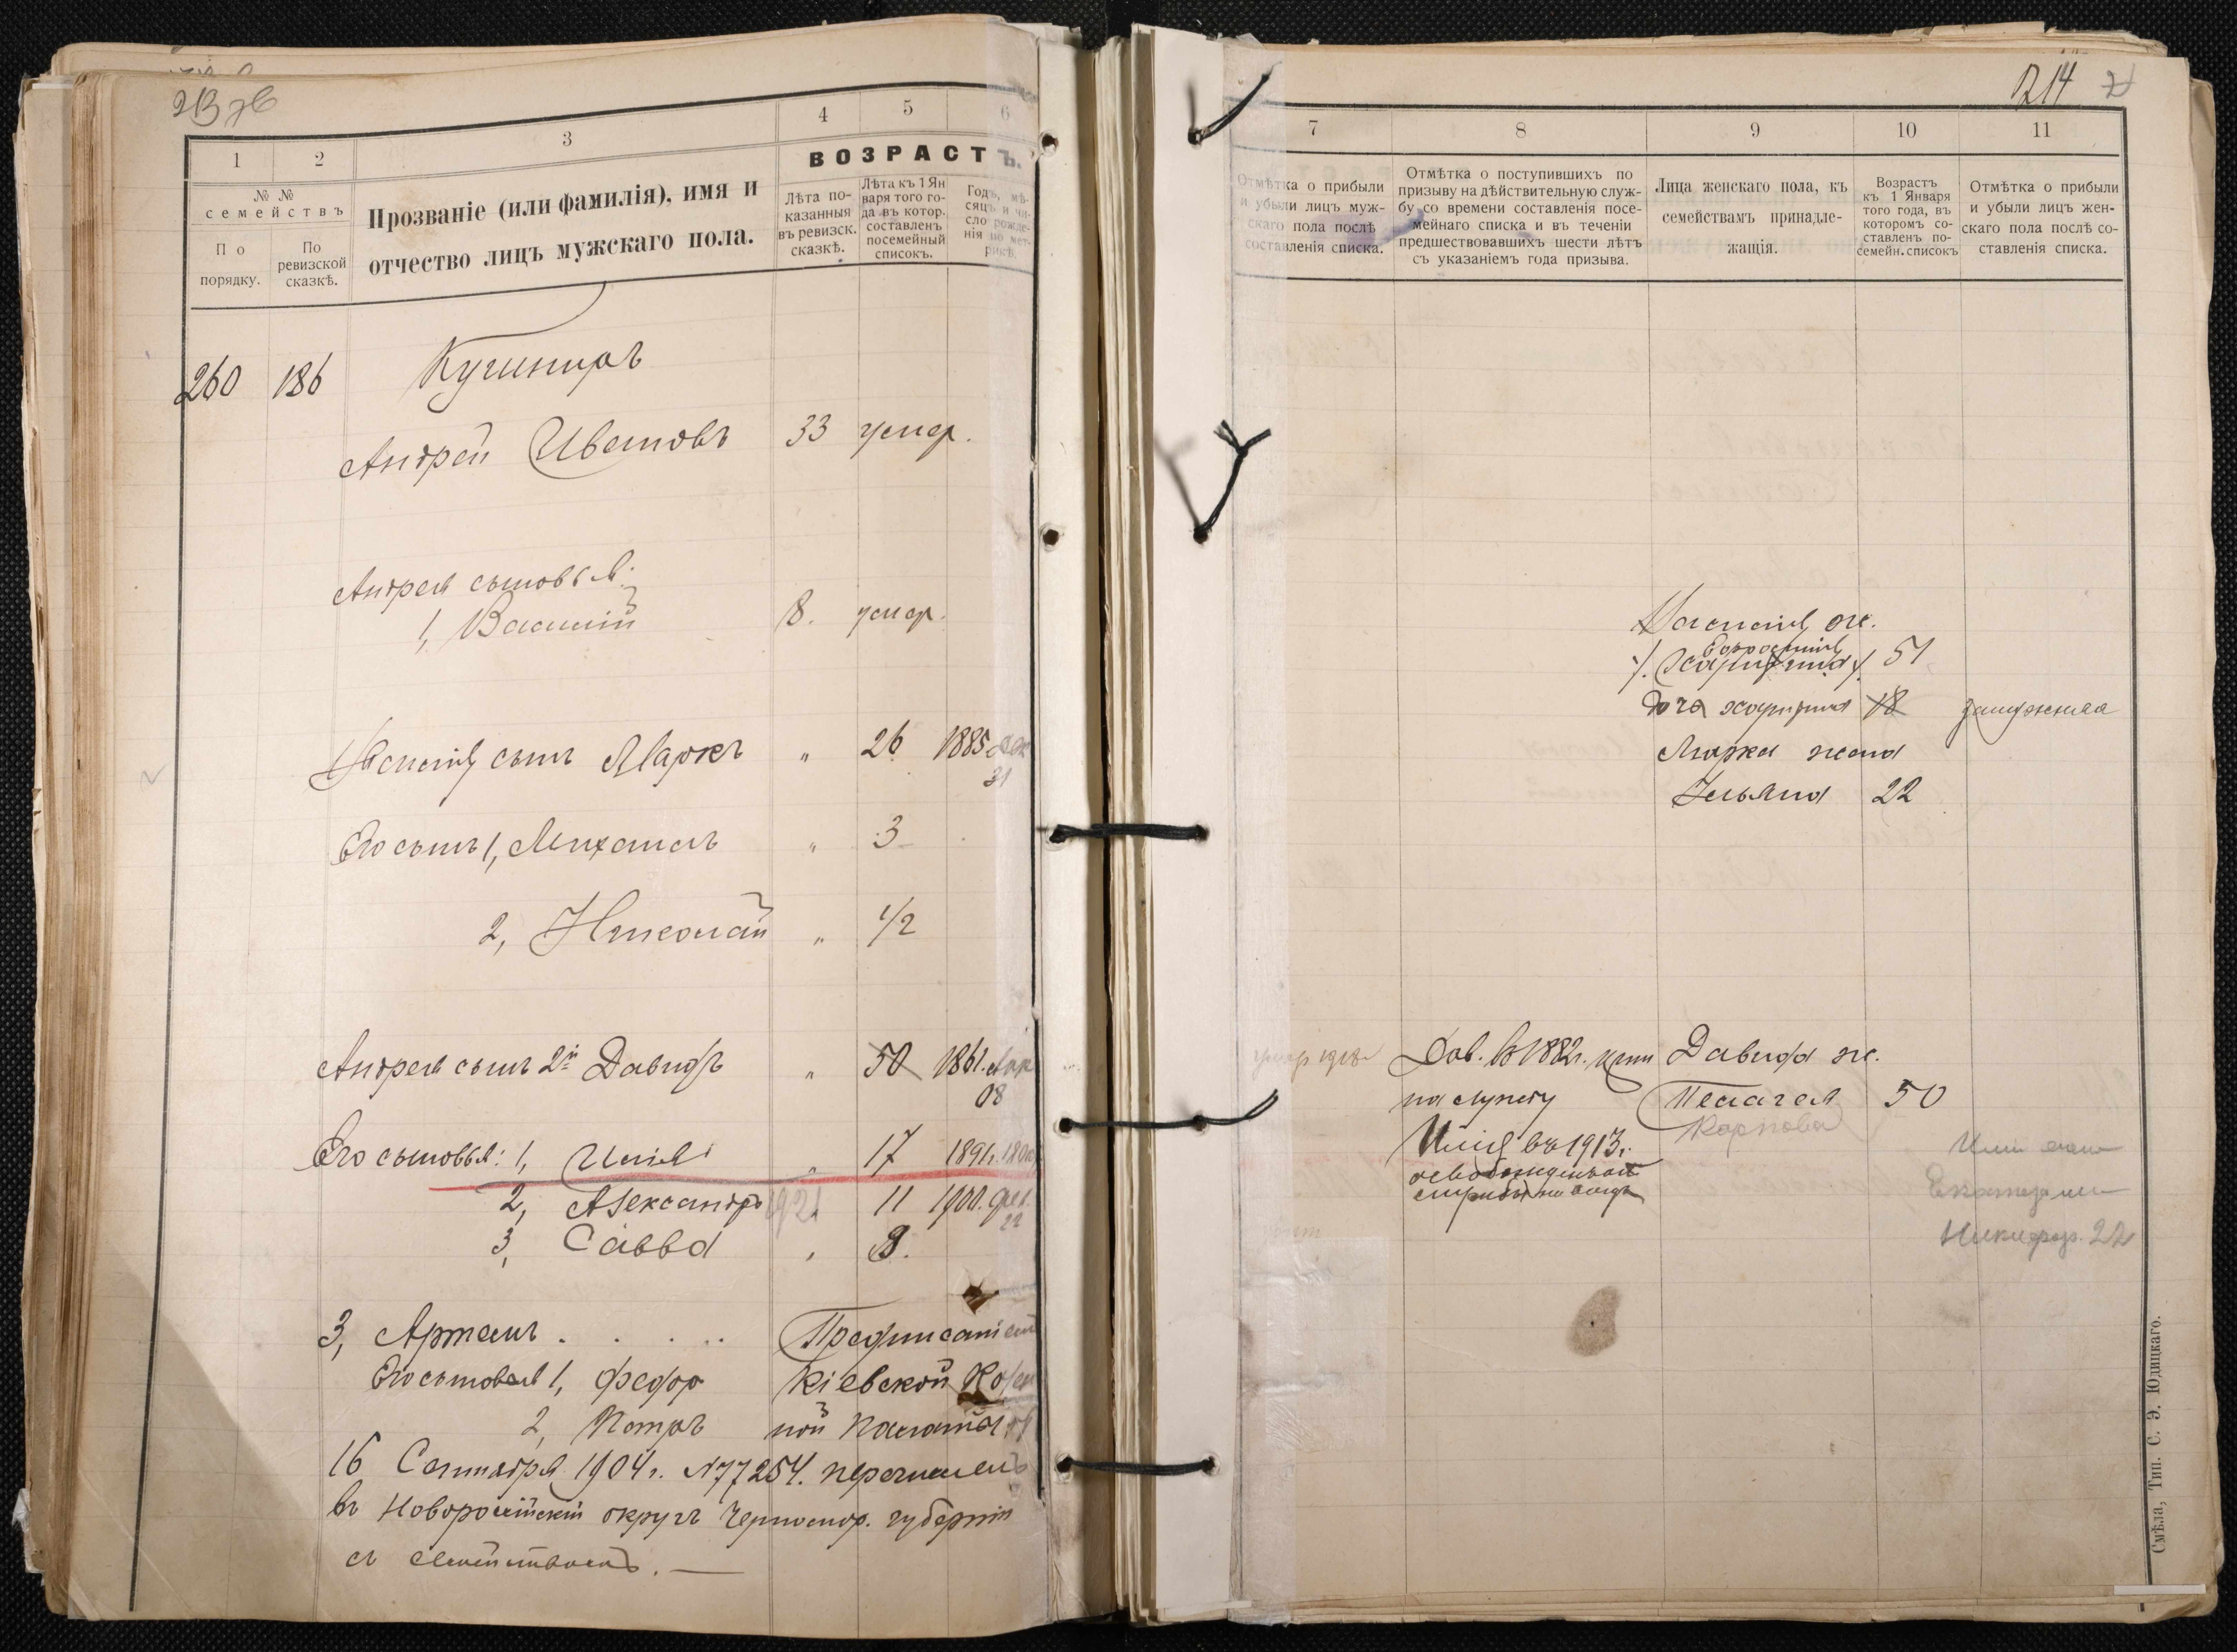 213 об
1
2
3
4
5
6
№ №
семействъ
По порядку.
По ревизской сказкѣ.
Прозваніе (или фамилія), имя и
отчество лицъ мужскаго пола.
ВОЗРАСТЪ.
Лѣта по-
казанныя
въ ревизск.
сказкѣ.
Лѣта къ 1 Ян
варя того го-
да въ котор.
составленъ
посемейный
списокъ.
Годъ, мѣ-
сяцъ и чи-
сло рожде-
нія по мет-
рикѣ.
260 186 Кушниръ
Андрей Ивановъ 33 умер.
Андрея сыновья:
1, Василій 8. умер.
Василія сынъ Маркъ " 26 1885 Дек
31
Его сынъ 1, Михаилъ " 3
2, Николай " 1/2
Андрея сынъ 2й Давидъ " 50 1861.
08
Его сыновья: 1, Илія " 17 1891г.
2, Александръ 1921 11 1900.
22
3, Савва " 8.
3, Артемъ . . . . . Предписаніем
Его сыновья 1, Федор Кіевской Казен
2, Петръ ной Палаты от
16 Сентября 1904 г. №77254. перечислен
въ Новороссійскій округъ Черномор. губерніи
съ семействомъ. —
214
7
8
9
10
11
Отмѣтка о прибыли
и убыли лицъ муж-
скаго пола послѣ
составленія списка.
Отмѣтка о поступившихъ по
призыву на дѣйствительную служ-
бу со времени составленія посе-
мейнаго списка и въ теченіи
предшествовавшихъ шести лѣтъ
съ указаніемъ года призыва.
Лица женскаго пола, къ
семействамъ принадле-
жащія.
Возрастъ
къ 1 Января
того года, въ
которомъ со-
ставленъ по-
семейн. списокъ
Отмѣтка о прибыли
и убыли лицъ жен-
скаго пола послѣ со-
ставленія списка.
Василія ж.
Ефросинія
51
дочь 18 замужняя
Марка жена
Ульяна 22
умер Дав. въ 1882г. Давида ж.
на службу Пелагея 50
Илія въ 1913г. Карпова
освобожденъ от
службы на всегда
Или жена
Екатерина
Никифор. 22
Смѣла, Тип. С. Э. Юдицкаго.